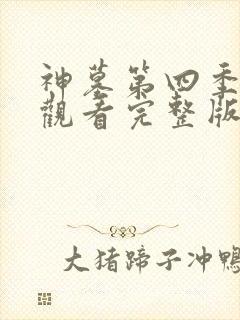 神墓第四季
觀看完整版
大猪蹄子冲鴨